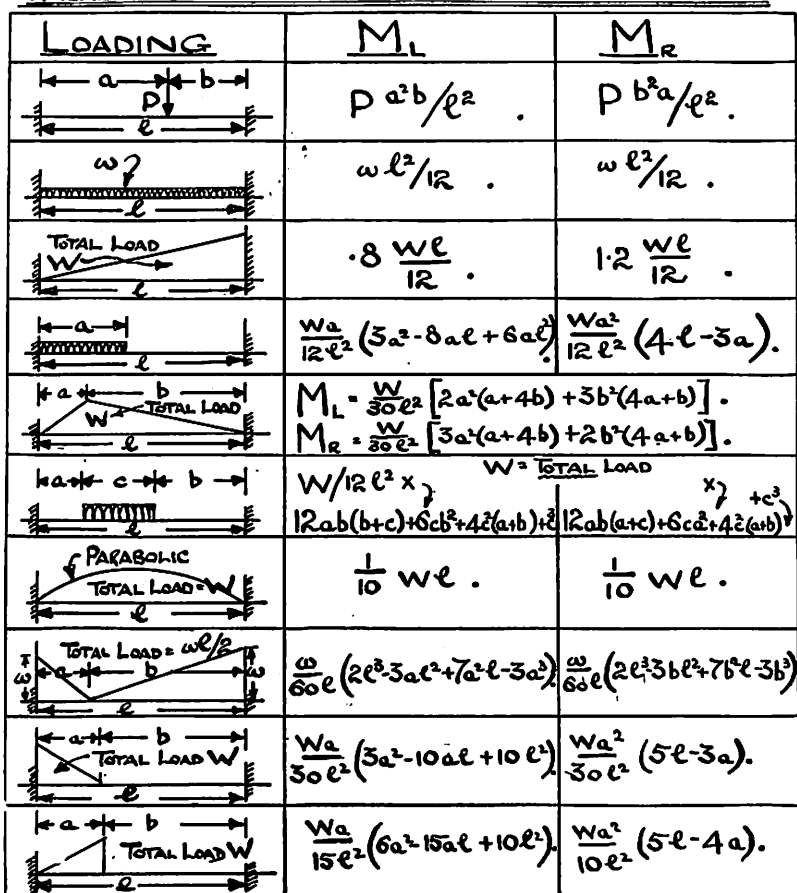 LOADING M_L M_R
a b
P
ℓ
P a²b/ℓ² . P b²a/ℓ² .
ω
ℓ
ω ℓ²/12 . ω ℓ²/12 .
TOTAL LOAD
W
ℓ
·8 Wℓ/12 . 1·2 Wℓ/12 .
a
ℓ
Wa/12ℓ² (3a²-8aℓ+6aℓ²) Wa²/12ℓ² (4ℓ-3a).
a b
W TOTAL LOAD
ℓ
M_L = W/30ℓ² [2a²(a+4b)+3b²(4a+b)].
M_R = W/30ℓ² [3a²(a+4b)+2b²(4a+b)].
a c b
ℓ
W = TOTAL LOAD
W/12ℓ² x x
12ab(b+c)+6cb²+4c²(a+b)+c³ 12ab(a+c)+6ca²+4c²(a+b) +c³
PARABOLIC
TOTAL LOAD=W
ℓ
1/10 Wℓ . 1/10 Wℓ .
TOTAL LOAD= ωℓ/2
ω a b ω
ℓ
ω/60ℓ (2ℓ³-3aℓ²+7a²ℓ-3a³) ω/60ℓ (2ℓ³-3bℓ²+7b²ℓ-3b³)
a b
TOTAL LOAD W
ℓ
Wa/30ℓ² (3a²-10aℓ+10ℓ²) Wa²/30ℓ² (5ℓ-3a).
a b
TOTAL LOAD W
ℓ
Wa/15ℓ² (6a²-15aℓ+10ℓ²). Wa²/10ℓ² (5ℓ-4a).